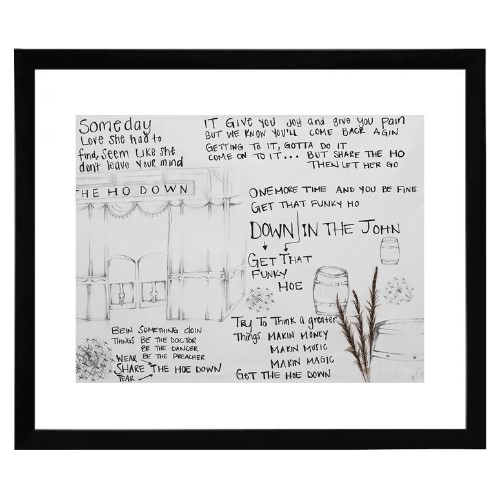 Someday
Love she had to
find, Seem like she
don't leave your mind
IT Give you Joy and give you Pain
BUT WE KNOW YOU'LL COME BACK AGIN
GETTING TO IT, GOTTA DO IT
COME ON TO IT... BUT SHARE THE HO
THEN LET HER GO
THE HO DOWN
ONE MORE TIME AND YOU BE FINE
GET THAT FUNKY HO
DOWN IN THE JOHN
GET THAT
FUNKY
HOE
BEIN SOMETHING DOIN
THINGS BE THE DOCTOR
BE THE DANCER
WEAR BE THE PREACHER
SHARE THE HOE DOWN
TEAR
Try To Think a greater
Things MAKIN MONEY
MAKIN MUSIC
MAKIN MAGIC
GET THE HOE DOWN